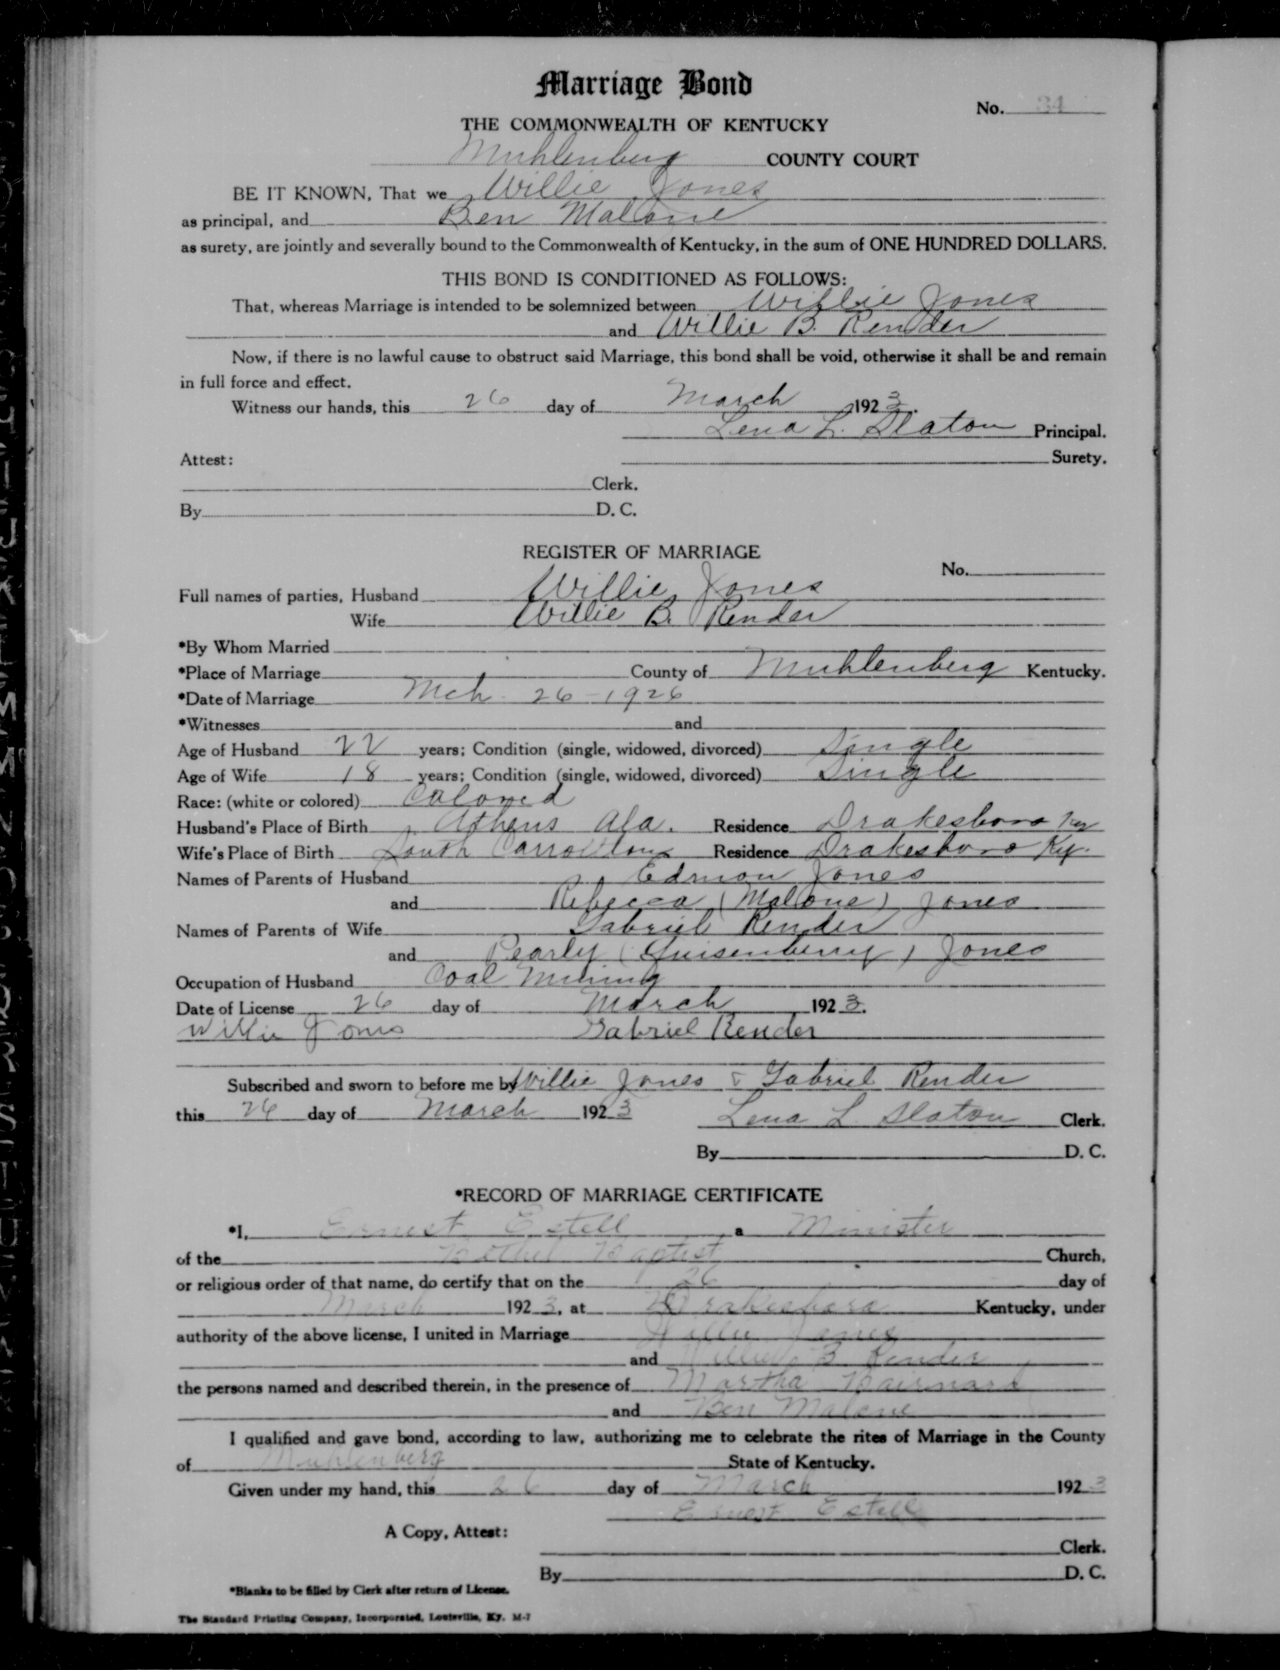 Marriage Bond
No. 34
THE COMMONWEALTH OF KENTUCKY
Muhlenberg COUNTY COURT
BE IT KNOWN, That we Willie Jones
as principal, and Ben Malone
as surety, are jointly and severally bound to the Commonwealth of Kentucky, in the sum of ONE HUNDRED DOLLARS.
THIS BOND IS CONDITIONED AS FOLLOWS:
That, whereas Marriage is intended to be solemnized between Willie Jones
and Willie B. Render
Now, if there is no lawful cause to obstruct said Marriage, this bond shall be void, otherwise it shall be and remain
in full force and effect.
Witness our hands, this 26 day of March 1923.
Lena L. Slaton Principal.
Attest: Surety.
Clerk.
By D. C.
REGISTER OF MARRIAGE
No.
Full names of parties, Husband Willie Jones
Wife Willie B. Render
*By Whom Married
*Place of Marriage County of Muhlenberg Kentucky.
*Date of Marriage Mch. 26-1926
*Witnesses and
Age of Husband 22 years; Condition (single, widowed, divorced) Single
Age of Wife 18 years; Condition (single, widowed, divorced) Single
Race: (white or colored) Colored
Husband's Place of Birth Athens Ala. Residence Drakesboro Ky
Wife's Place of Birth South Carrollton Residence Drakesboro Ky.
Names of Parents of Husband Edmon Jones
and Rebecca (Malone) Jones
Names of Parents of Wife Gabriel Render
and Pearly (Quisenberry) Jones
Occupation of Husband Coal Mining
Date of License 26 day of March 1923.
Willie Jones Gabriel Render
Subscribed and sworn to before me by Willie Jones & Gabriel Render
this 26 day of March 1923 Lena L. Slaton Clerk.
By D. C.
*RECORD OF MARRIAGE CERTIFICATE
*I, Ernest Estell a Minister
of the Bethel Baptist Church,
or religious order of that name, do certify that on the 26 day of
March 1923, at Drakesboro Kentucky, under
authority of the above license, I united in Marriage Willie Jones
and Willie B Render
the persons named and described therein, in the presence of Martha
and Ben Malone
I qualified and gave bond, according to law, authorizing me to celebrate the rites of Marriage in the County
of Muhlenberg State of Kentucky.
Given under my hand, this 26 day of March 1923
Ernest Estell
A Copy, Attest:
Clerk.
By D. C.
*Blanks to be filled by Clerk after return of License.
The Standard Printing Company, Incorporated, Louisville, Ky. M-7